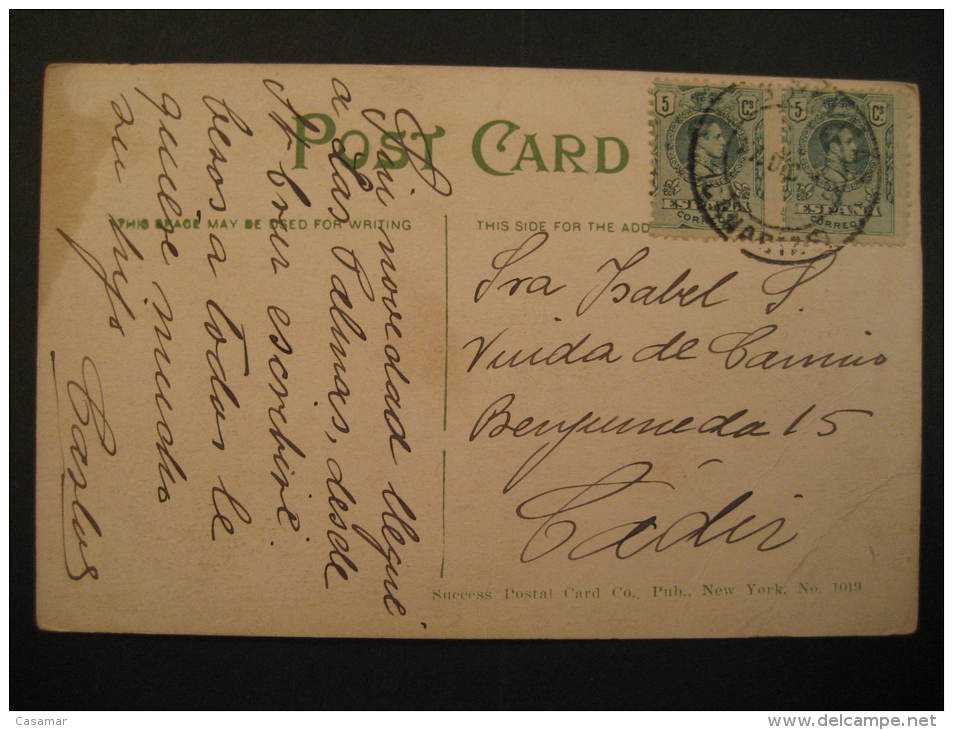 POST CARD
THIS SPACE MAY BE USED FOR WRITING
THIS SIDE FOR THE ADD
5 Cs
5 Cs
ESPAÑA
CORREOS
ESPAÑA
CORREOS
Sin novedad llegué
a Las Palmas, desde
escribiré.
besos a todos le
quiere mucho
su hijo
Carlos
Sra Isabel S.
Viuda de Camino
Benjumeda 15
Cádiz
Success Postal Card Co., Pub., New York, No. 1019
Casamar
delcampe.net